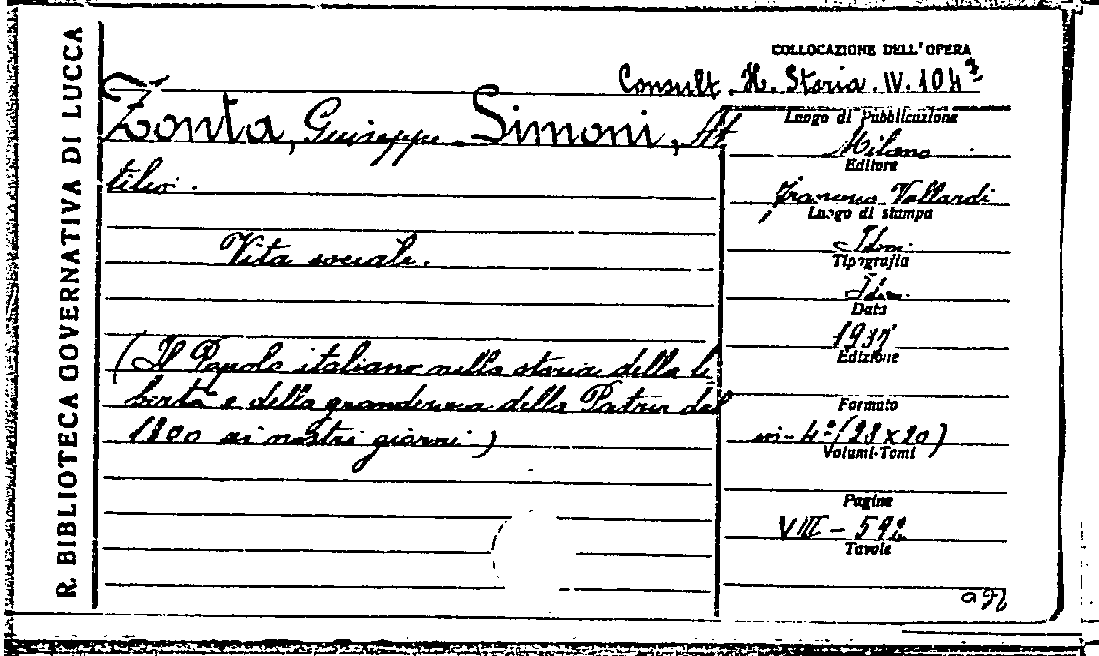 R. BIBLIOTECA GOVERNATIVA DI LUCCA
COLLOCAZIONE DELL'OPERA
Consult. H. Storia. IV. 104⁷
Zonta, Giuseppe - Simoni, At
tilio.
Vita sociale.
(Il Popolo italiano nella storia della li
bertà e della grandezza della Patria dal
1800 ai nostri giorni)
Luogo di Pubblicazione
Milano
Editore
Francesco Vallardi
Luogo di stampa
Idem
Tipografia
Idem
Data
Edizione
Formato
in-4º (28 x 20)
Volumi-Tomi
Pagine
VIII - 592
Tavole